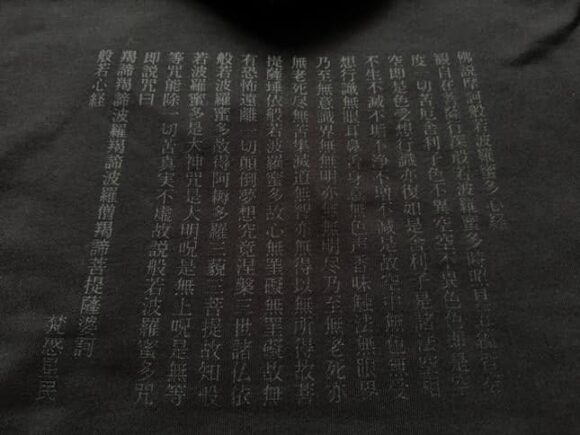 佛説摩訶般若波羅蜜多心経
観自在菩薩行深般若波羅蜜多時照見五蘊皆空
度一切苦厄舎利子色不異空空不異色色即是空
空即是色受想行識亦復如是舎利子是諸法空相
不生不滅不垢不浄不増不減是故空中無色無受
想行識無眼耳鼻舌身意無色声香味触法無眼界
乃至無意識界無無明亦無無明尽乃至無老死亦
無老死尽無苦集滅道無智亦無得以無所得故菩
提薩埵依般若波羅蜜多故心無罣礙無罣礙故無
有恐怖遠離一切顛倒夢想究竟涅槃三世諸仏依
般若波羅蜜多故得阿耨多羅三藐三菩提故知般
若波羅蜜多是大神呪是大明呪是無上呪是無等
等呪能除一切苦真実不虚故説般若波羅蜜多呪
即説呪曰
羯諦羯諦波羅羯諦波羅僧羯諦菩提薩婆訶
般若心経
梵惑星民